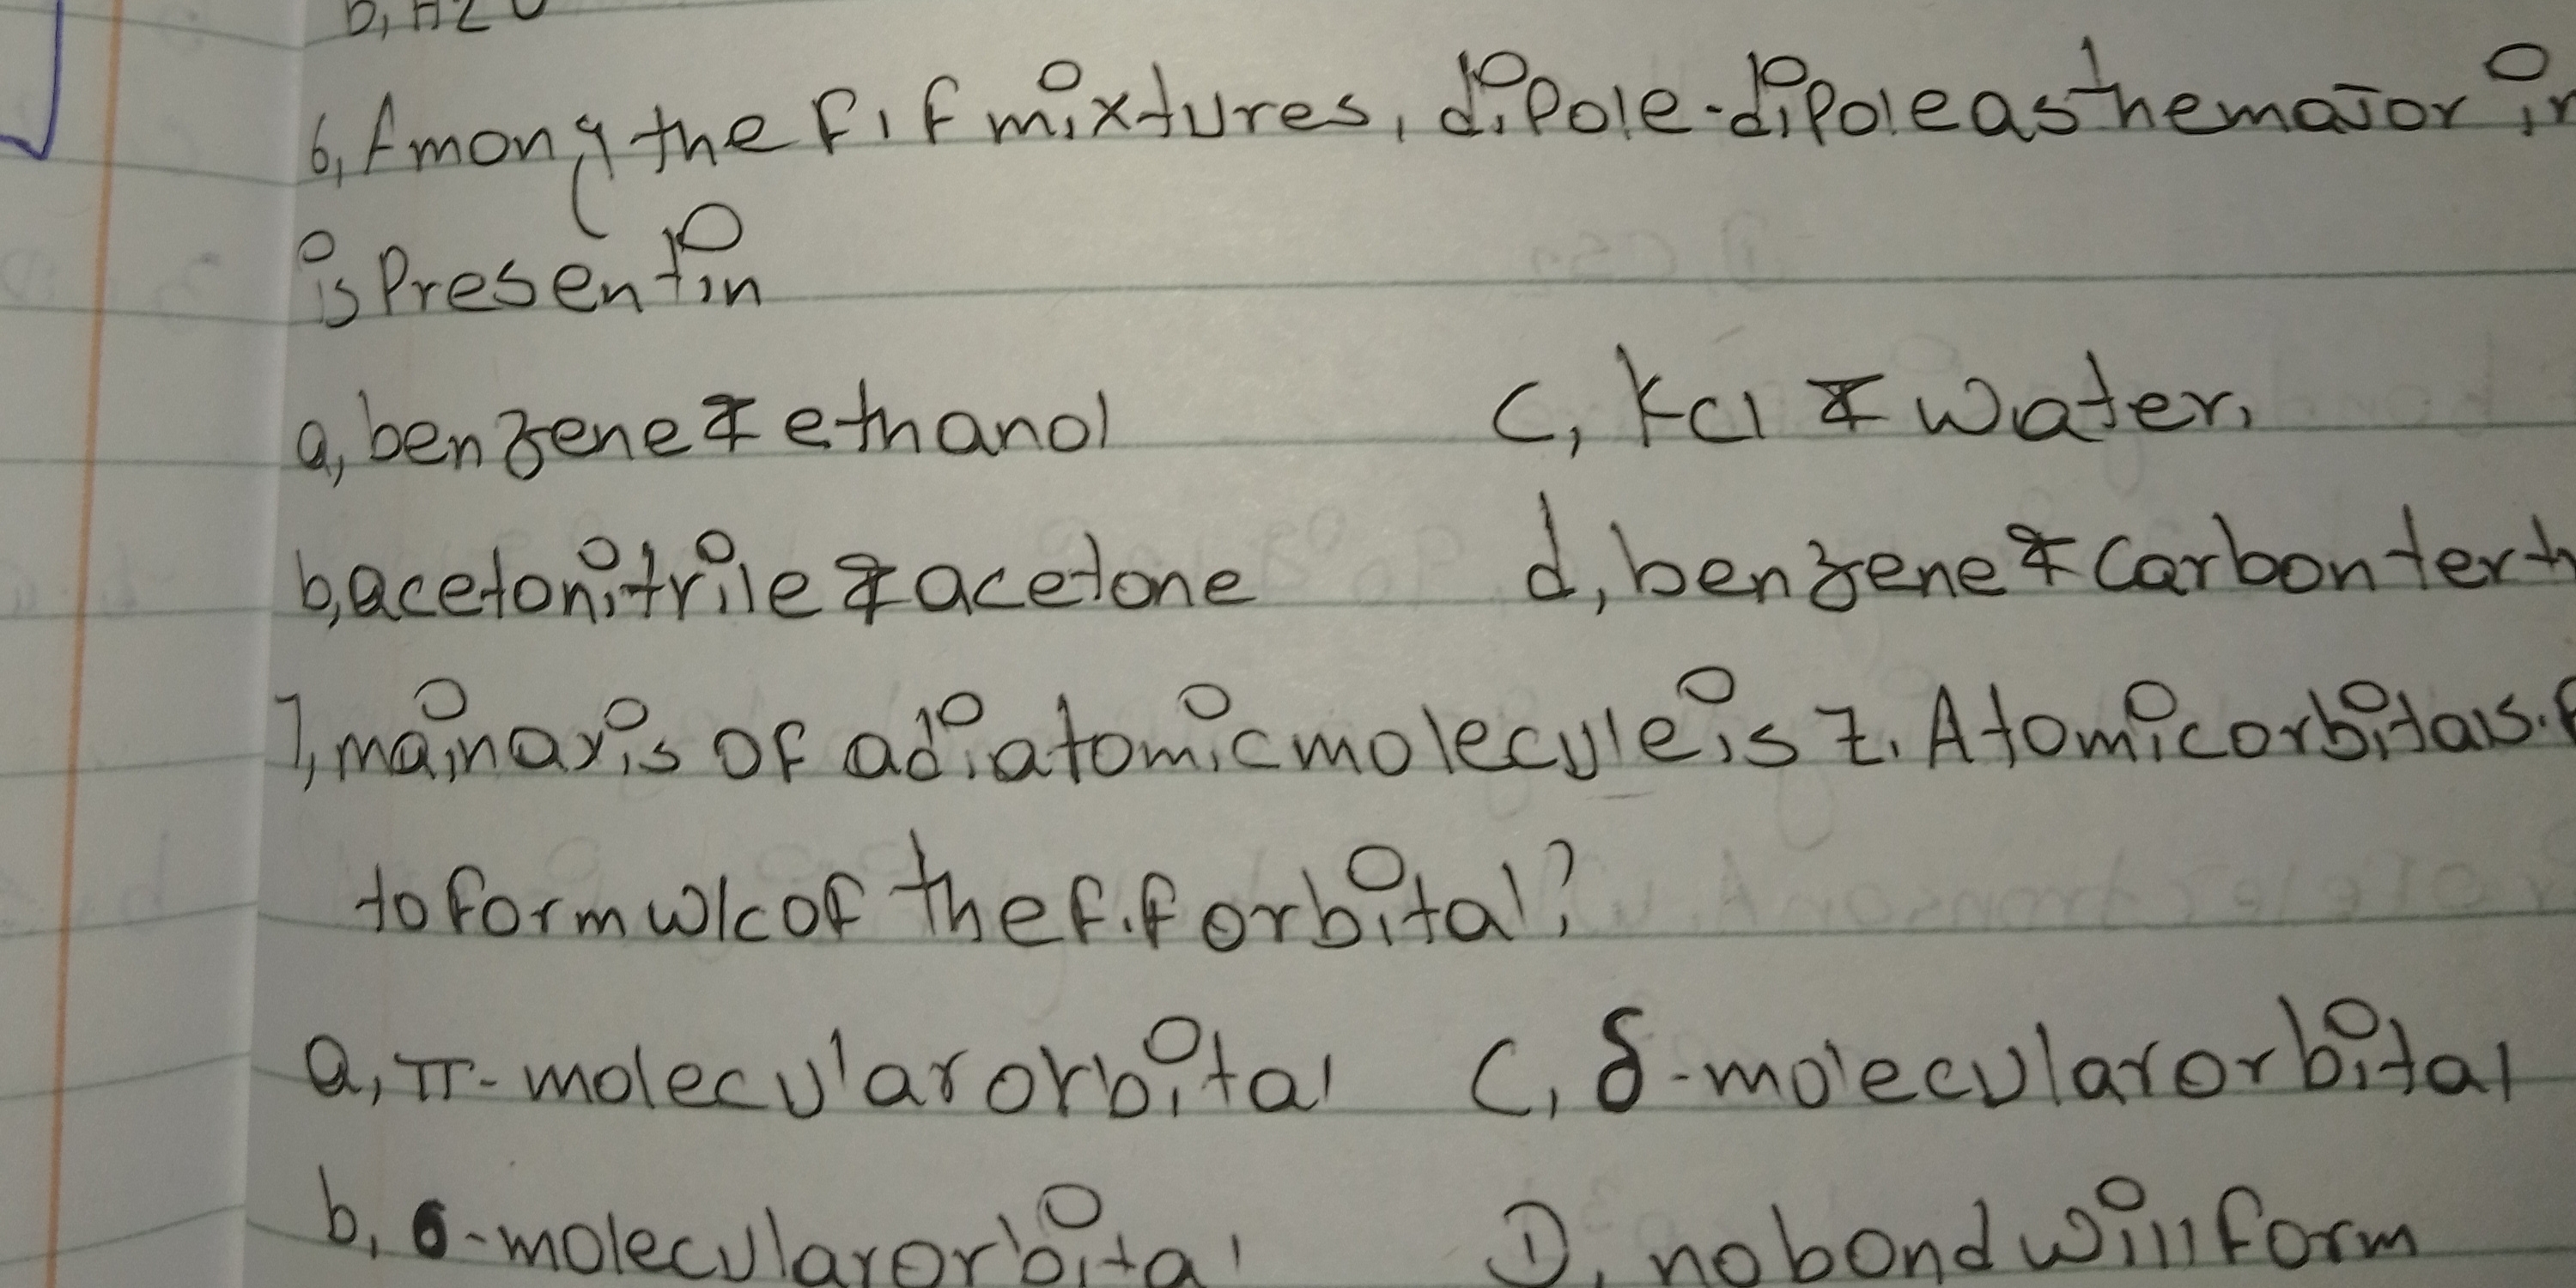 6, Among the F, F mixtures, dipole-dipole as the major in
is Present in
a, benzene & ethanol
c, Kcl & water,
b, acetonitrile & acetone
d, benzene & carbon tert
7, main axis of a diatomic molecule is z. Atomic orbitals.
to form w/c of the F.F orbital?
a, π-molecular orbital
C, δ-molecular orbital
b, σ-molecular orbital
D, no bond will form